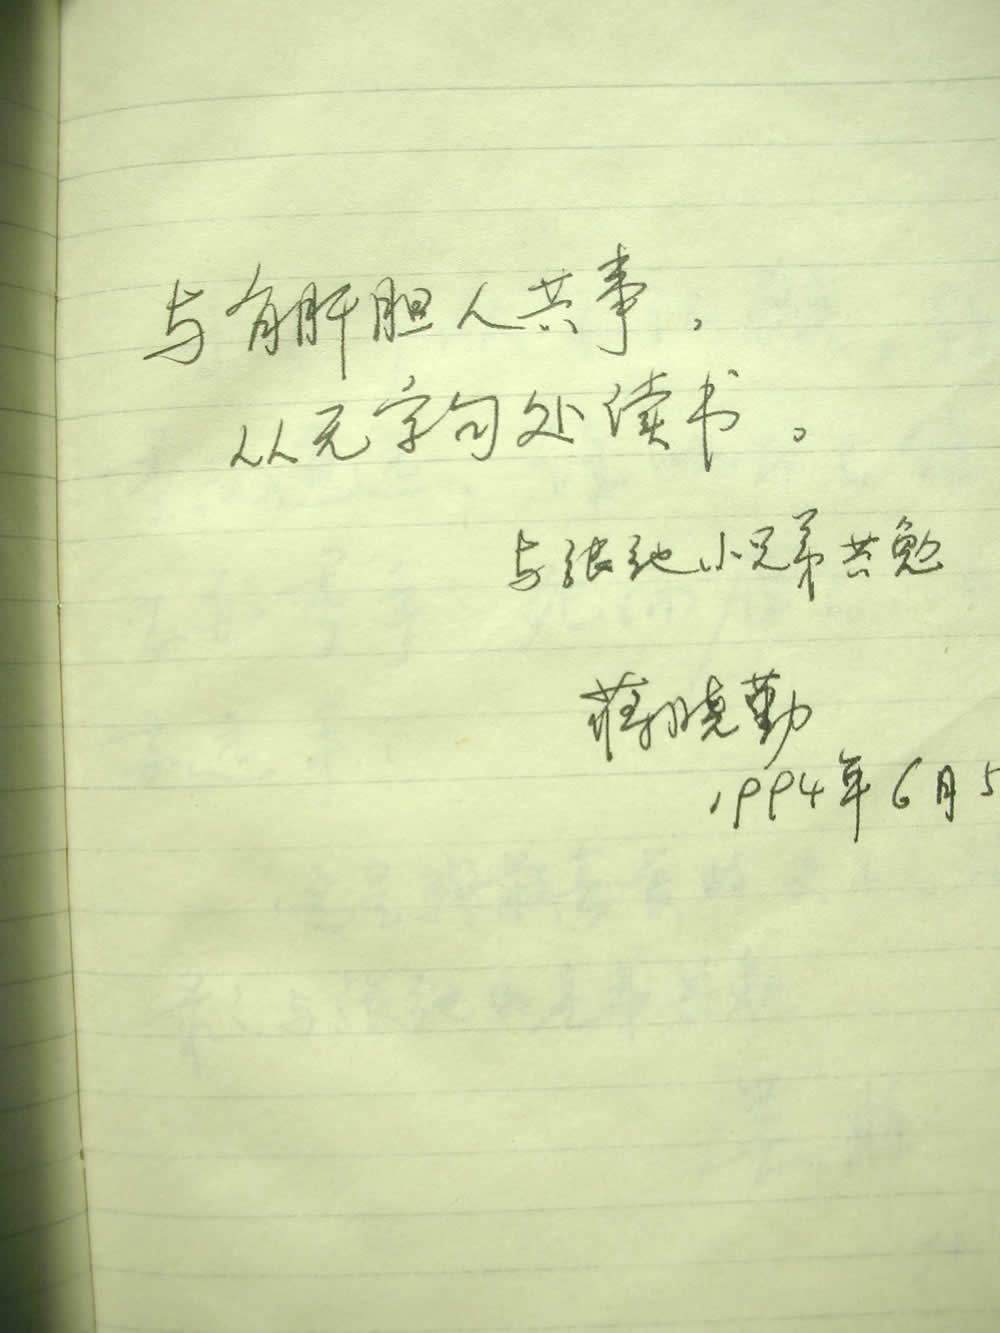 与有肝胆人共事，
从无字句处读书。
与张弛小兄弟共勉
蒋晓勤
1994年6月5